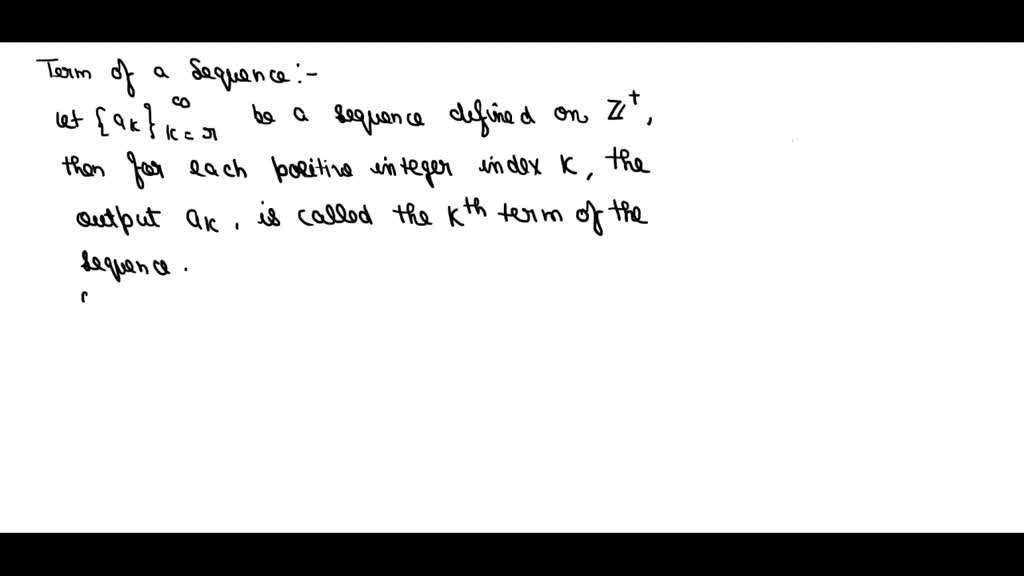 Term of a Sequence:-
let {aₖ}^∞_{k=r} be a sequence defined on ℤ⁺,
then for each positive integer index k, the
output aₖ, is called the kᵗʰ term of the
sequence.